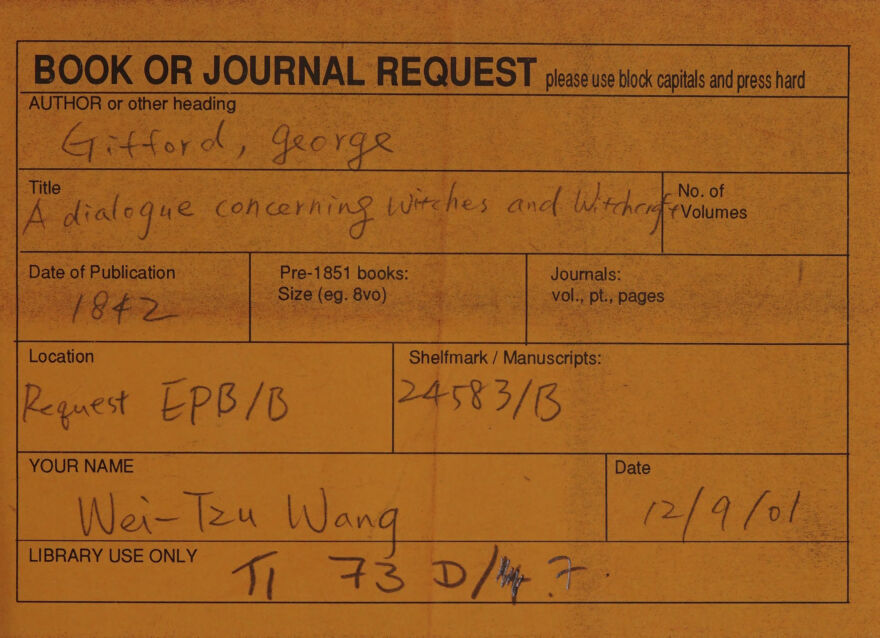 BOOK OR JOURNAL REQUEST please use block capitals and press hard
AUTHOR or other heading
Gifford, george
Title
A dialogue concerning Witches and Witchcraft
No. of
Volumes
Date of Publication
1842
Pre-1851 books:
Size (eg. 8vo)
Journals:
vol., pt., pages
Location
Request EPB/B
Shelfmark / Manuscripts:
24583/B
YOUR NAME
Wei-Tzu Wang
Date
12/9/01
LIBRARY USE ONLY
T1 73 D/ 7.